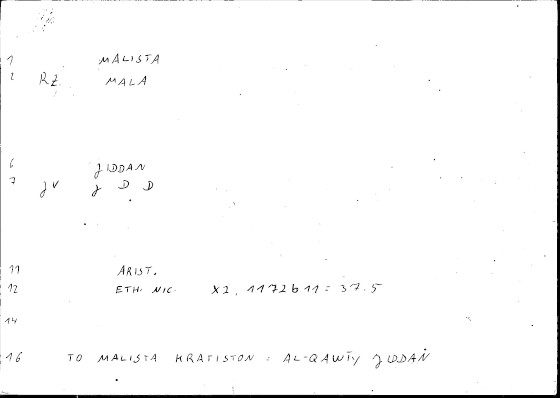 1 MALISTA
2 RZ MALA
6 JIDDAN
7 JV J D D
11 ARIST.
12 ETH. NIC. X2, 1172b11 = 37.5
14
16 TO MALISTA KRATISTON = AL-QAWĪY JIDDAN